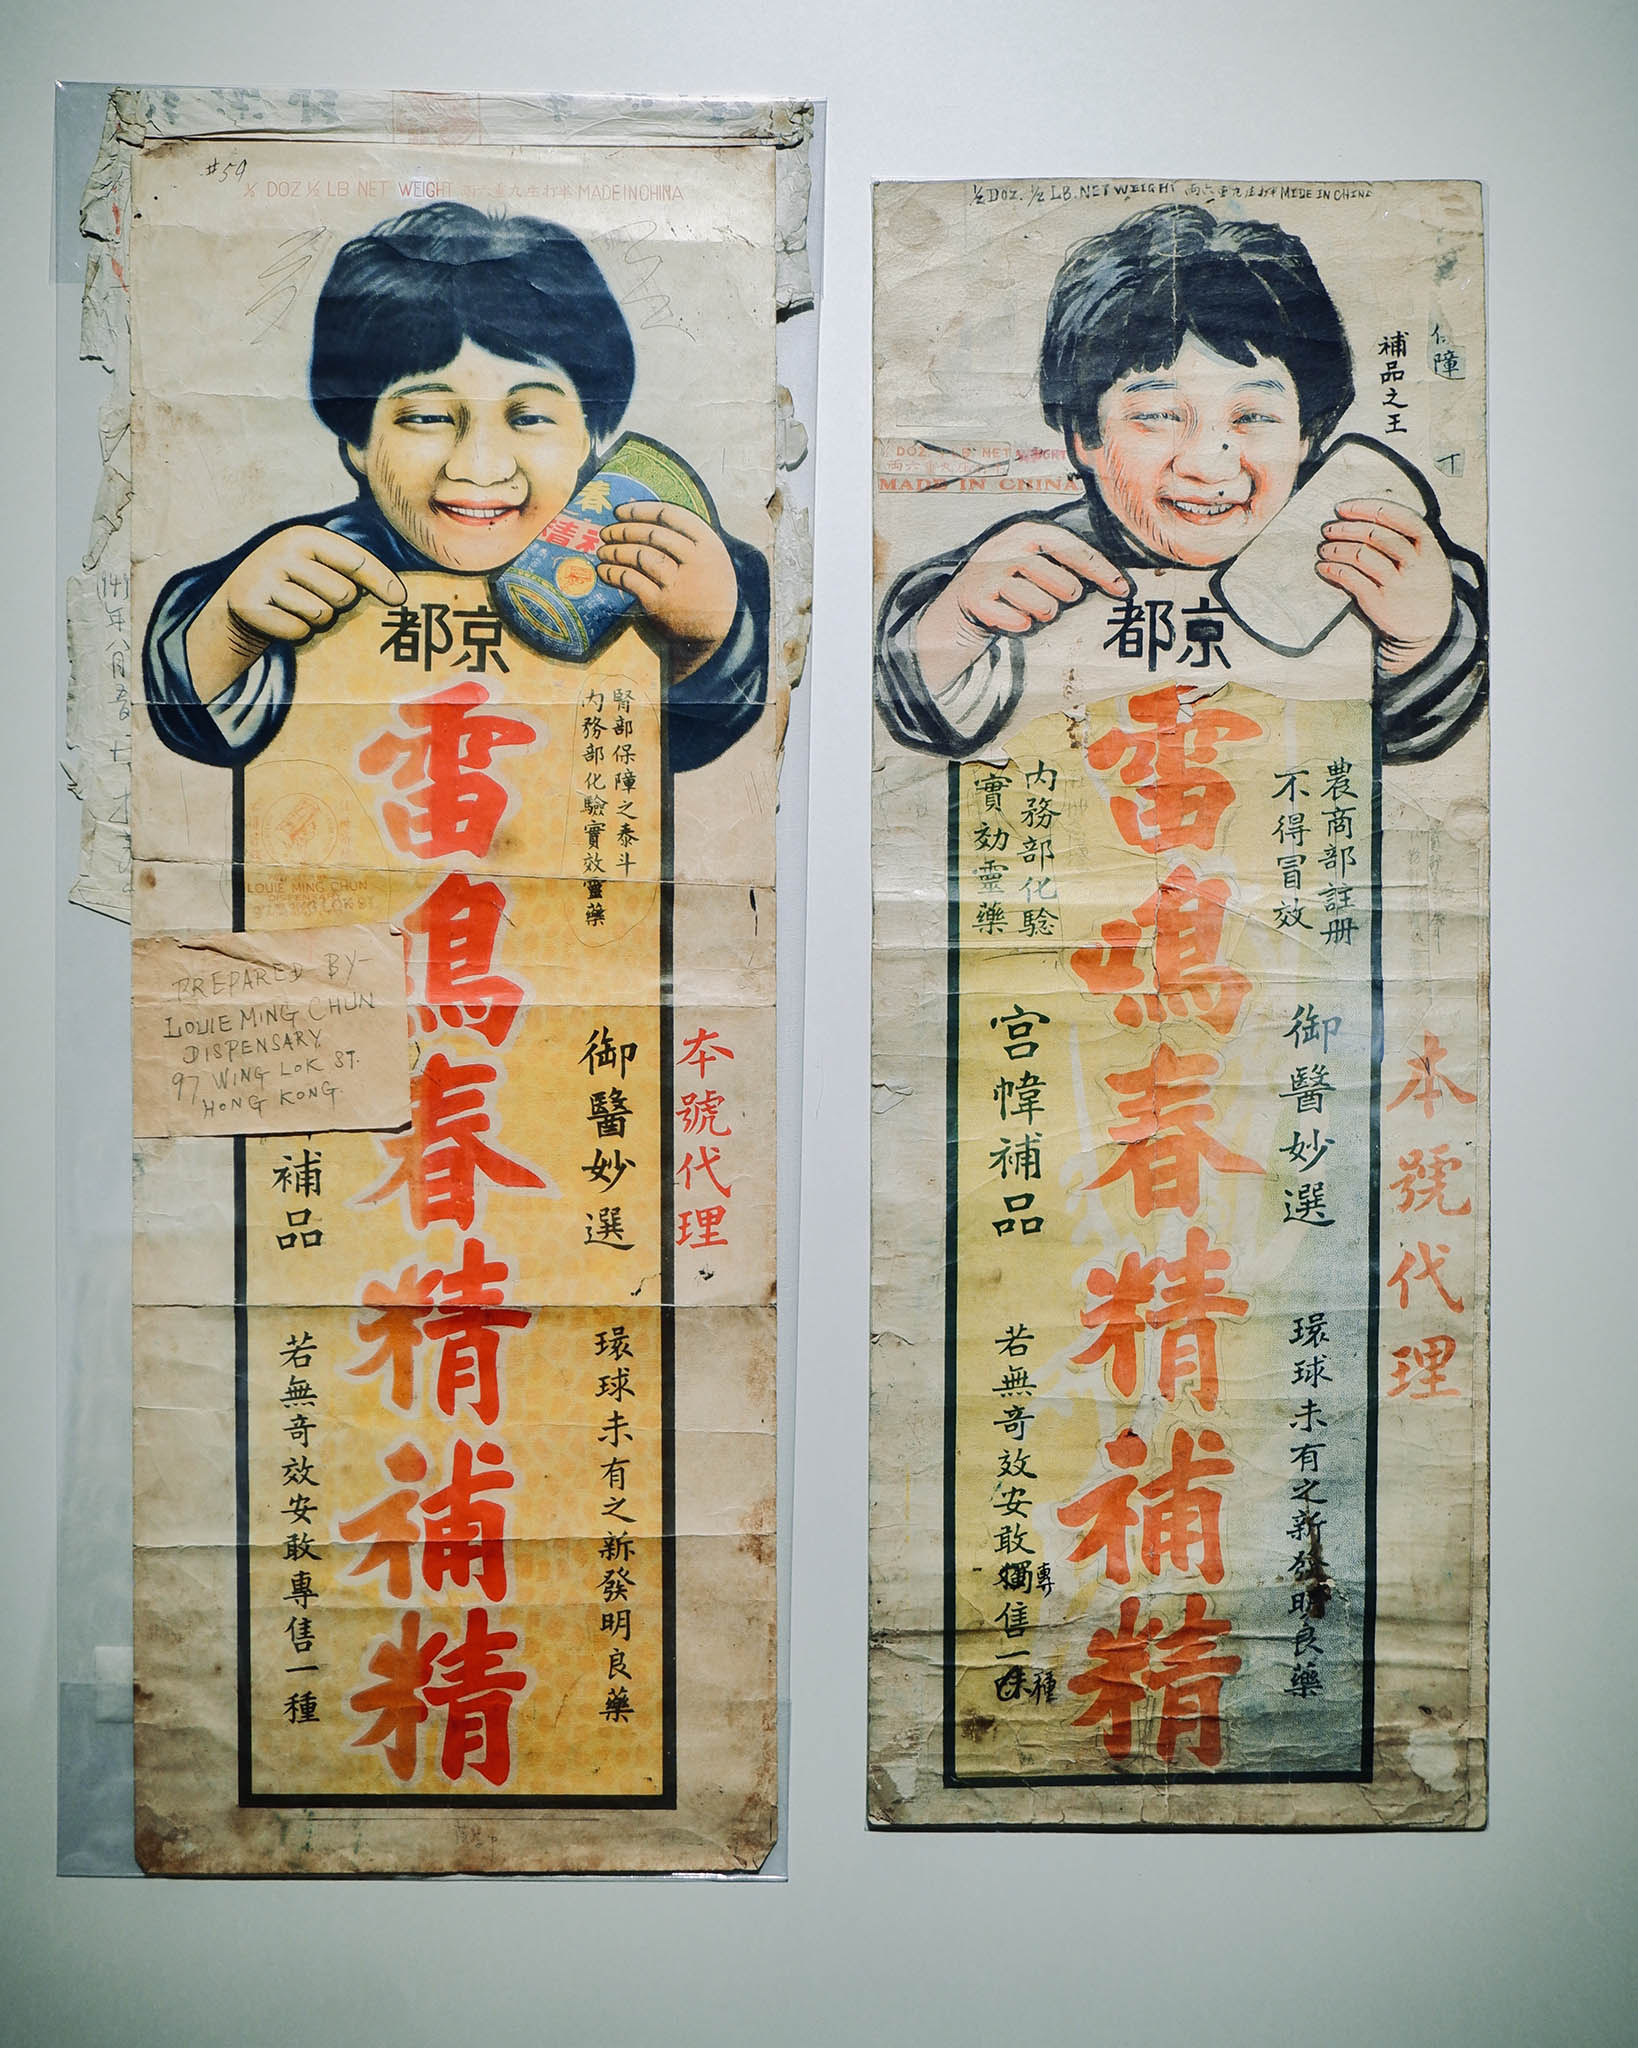 #59
½ DOZ ½ LB NET WEIGHT 両六重九庄打半 MADE IN CHINA
春
補精
都京
雷鳴春精補精
腎部保障之泰斗
内務部化驗實效靈藥
御醫妙選
補品
環球未有之新發明良藥
若無奇效安敢專售一種
本號代理
LOUIE MING CHUN
DISPENSARY
97 WING LOK ST
PREPARED BY-
LOUIE MING CHUN
DISPENSARY.
97 WING LOK ST.
HONG KONG.
½ DOZ. ½ LB. NET WEIGHT 両六重九庄打半 MADE IN CHINA
補品之王
障
½ DOZ ½ LB NET WEIGHT
MADE IN CHINA
都京
雷鳴春精補精
農商部註冊
不得冒效
内務部化驗
實効靈藥
御醫妙選
宮幃補品
環球未有之新發明良藥
若無奇效安敢獨售一味
專
種
本號代理